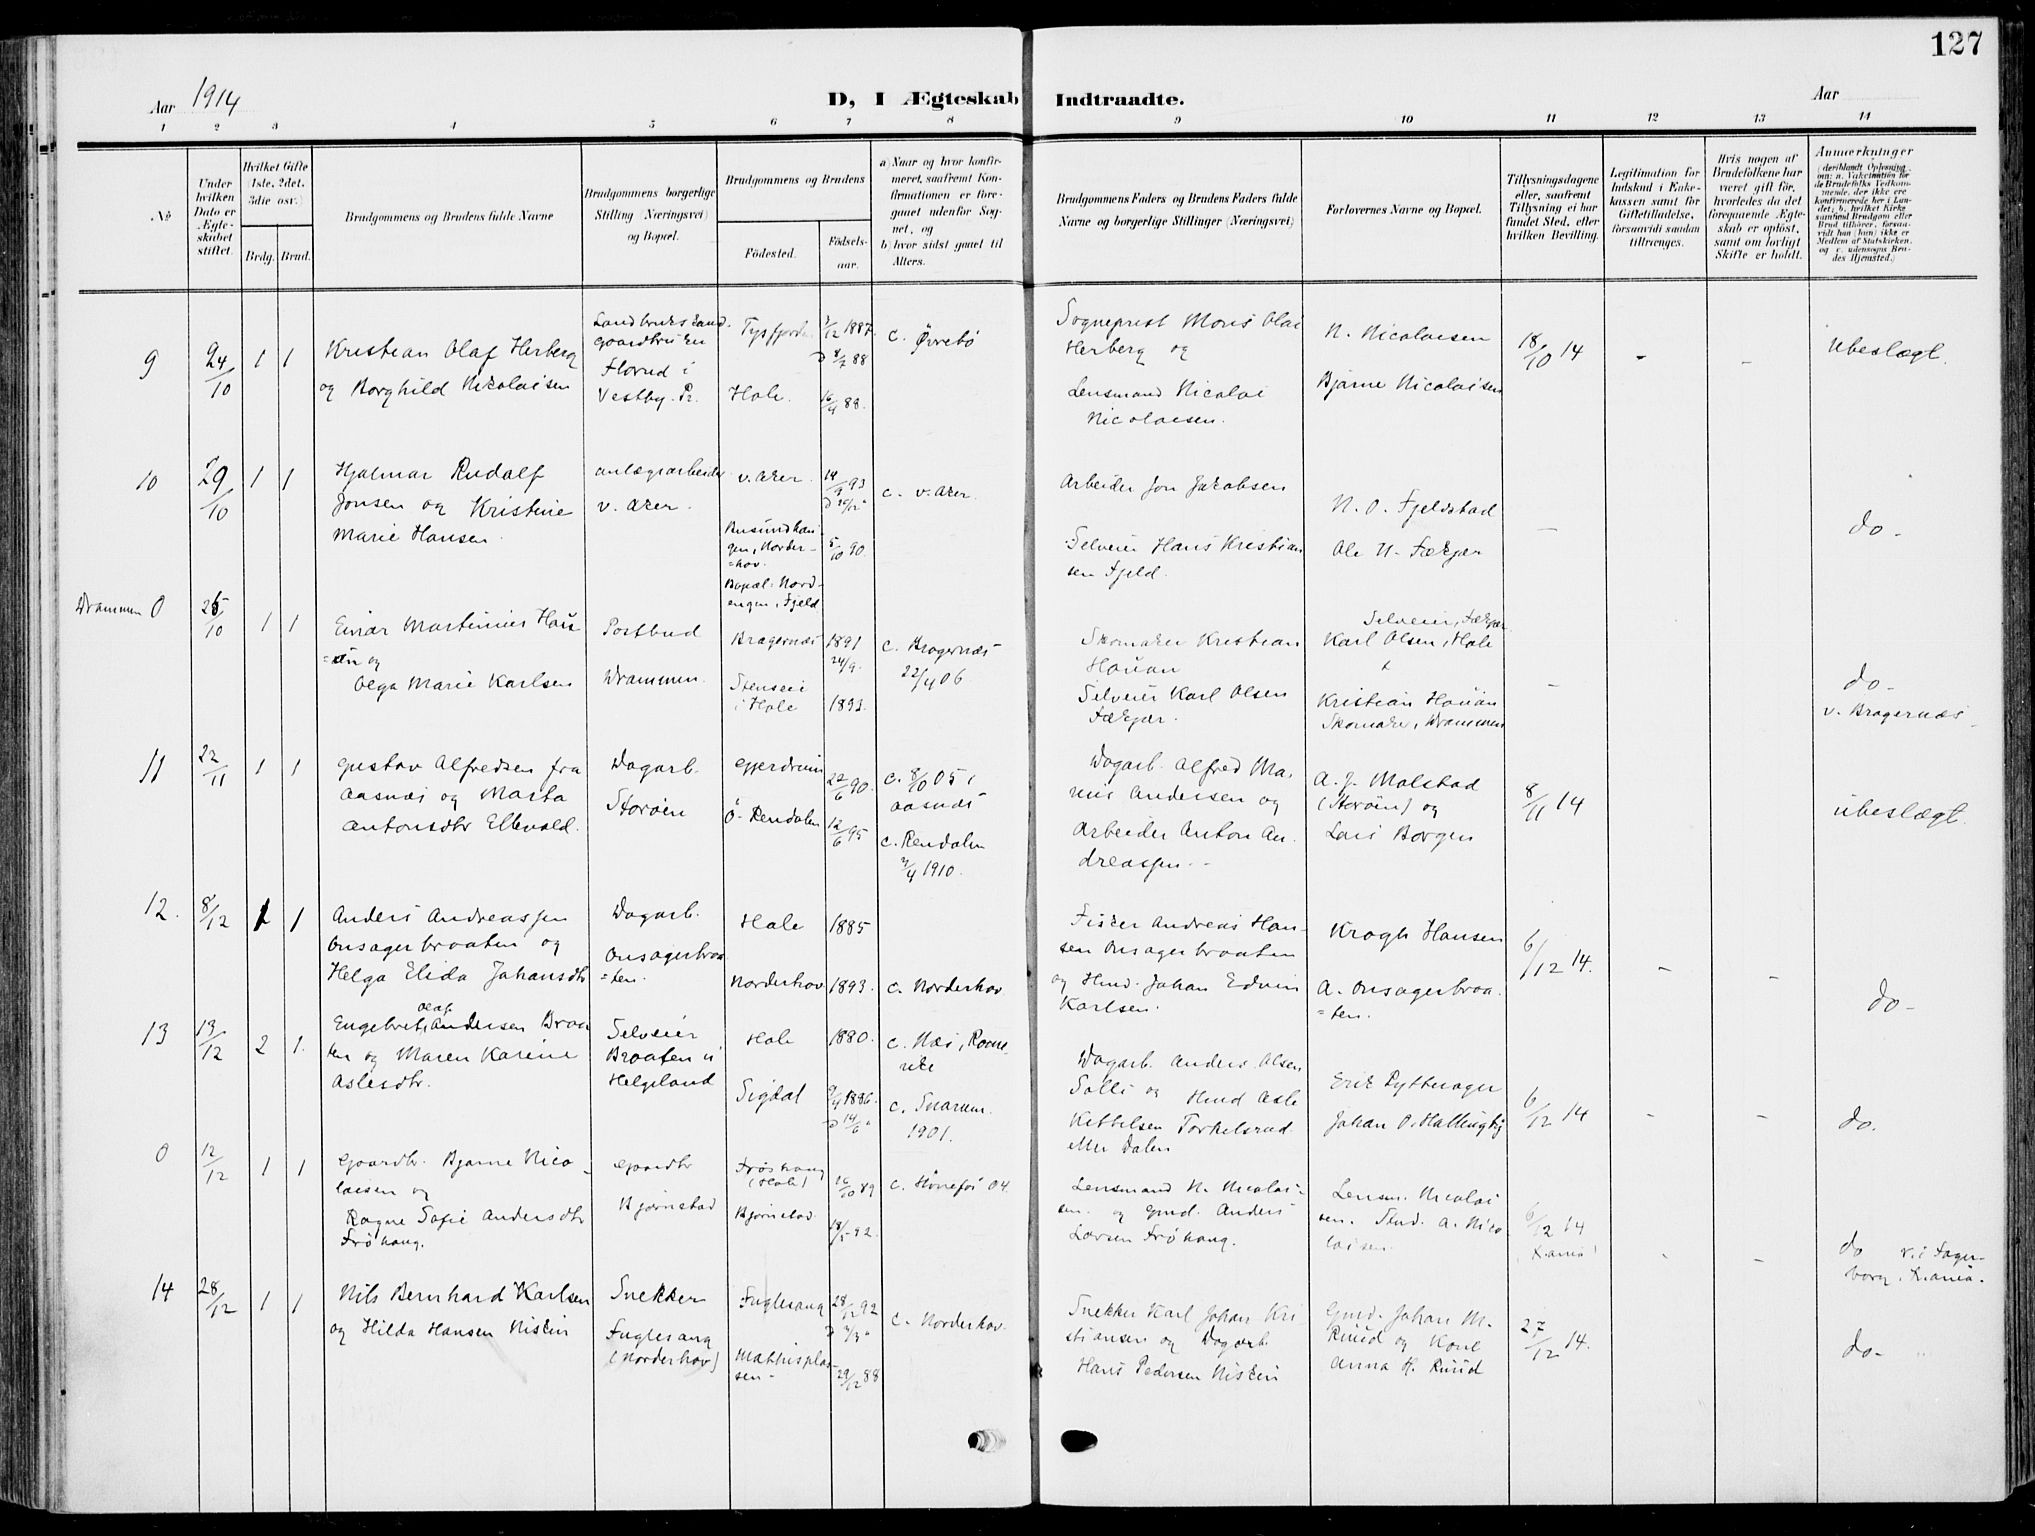 127
Aar 1914
D, I Ægteskab Indtraadte.
Aar
1 2 3 4 5 6 7 8 9 10 11 12 13 14
No
Under hvilken Dato er Ægteskabet stiftet.
Hvilket Gifte (1ste, 2det, 3die osv.)
Brdg. Brud.
Brudgommens og Brudens fulde Navne
Brudgommens borgerlige Stilling (Næringsvei) og Bopæl.
Brudgommens og Brudens
Födested. Födselsaar.
a) Naar og hvor konfirmeret, saafremt Konfirmationen er foregaaet udenfor Sognet, og
b) hvor sidst gaaet til Alters.
Brudgommens Faders og Brudens Faders fulde Navne og borgerlige Stillinger (Næringsvei)
Forlovernes Navne og Bopæl.
Tillysningsdagene eller, saafremt Tillysning ei har fundet Sted, efter hvilken Bevilling.
Legitimation for Indskud i Enkekassen samt for Giftetilladelse, forsaavidt saadan tiltrænges.
Hvis nogen af Brudefolkene har været gift för, hvorledes da det foregaaende Ægteskab er oplöst, samt om lovligt Skifte er holdt.
Anmærkninger (deriblandt Oplysning om: a. Vaksination for de Brudefolks Vedkommende, der ikke ere konfirmerede her i Landet; b. hvilket Kirkesamfund Brudgom eller Brud tilhörer, forsaavidt han (hun) ikke er Medlem af Statskirken, og c. udensogns Brudes Hjemsted.)
9 24/10 1 1
Kristian Olaf Herberg
og Borghild Nikolaisen
gaardbruker
Vestby. Pr.
Tysfjorden
Hole.
1887
16/4 88.
c. Övrebö
Sogneprest Mons Olai
Herberg og
Lensmand Nicolai
Nicolaisen.
N. Nicolaisen
Bjarne Nicolaisen
18/10 14 - -
Ubeslægt.
10 29/10 1 1
Hjalmar Rudolf
Jonsen og Kristine
Marie Hansen.
anlægsarbeider
v. Aker.
v. Aker.
Busundhau
gen, Norder-
=hov.
Bopæl: Nord-
engen, Fjeld
5/10 90.
c. v. Aker.
Arbeider Jon Jakobsen
Selveier Hans Kristian
sen Fjeld.
N. O. Fjeldstad
Ole N. Fækjær
-
do -
Drammen 0 25/10 1 1
Einar Martinius Hau
=an og
Olga Marie Karlsen
Postbud
Drammen.
Bragernæs
Stensei
i Hole
1891
24/9.
1893.
c. Bragernæs
22/4 06.
Skomaker Kristian
Hauan
Selveier Karl Olsen
Fækjær.
Selveier, Fækjær
Karl Olsen, Hole
Kristian Hauan
Skomaker, Drammen
-
do -
v. Bragernæs
11 22/11 1 1
Gustav Alfredsen fra
Aasnæs og Marta
Antonsdtr Ellevold.
Dagarb.
Storöen
Gjerdrum
Ö. Rendalen
22/6 90.
12/6 95
c. 8/10 05 i
Aasnæs
c. Rendalen
1910.
Dagarb. Alfred Ma-
rius Andersen og
Arbeider Anton An-
dreassen --
A. J. Molstad
(Storöen) og
Lars Borgen
8/11 14
Ubeslægt.
12. 8/12 1 1
Anders Andreassen
Onsagerbraaten og
Helga Elida Johansdtr
Dagarb.
Onsagerbraa
=ten.
Hole
Norderhov
1885
1893.
c. Norderhov
Fisker Andreas Han-
sen Onsagerbraaten
og Hmd. Johan Edvin
Karlsen.
Krogh Hansen
A. Onsagerbraa
=ten.
6/12 14. - -
do -
13 13/12 2 1.
Olaf
Engebret Andersen Braa
ten og Maren Karine
Aslesdtr.
Selveier
Braaten u
Helgeland
Hole
Sigdal
1880.
1886.
c. Næs, Rome-
rike
c. Snarum.
1901.
Dagarb. Anders Olsen
Solli og Hmd Asle
Kettelsen Torkelsrud
eller Dalen
Erik Pytteager
Johan O. Hallingby
6/12 14 - -
do.
0 12/12 1 1
Gaardbr. Bjarne Nico-
laisen og
Ragna Sofie Andersdtr
Fröhaug.
Gaardbr
Bjørnstad
Fröshaug
(Hole)
Bjørnstad
16/10 89
18/5 92.
c. Hönefos 04.
Lensmand N. Nicolai-
sen. og Gmd. Anders
Larsen Fröhaug.
Lensm. Nicolai
sen. Stud. A. Nico
laisen.
6/12 14
(Krania) - -
do v. i Fager-
borg, Krania.
14 28/12 1 1
Nils Bernhard Karlsen
og Hilda Hansen Niskin
Snekker
Fuglesang
(Norderhov)
Fuglesang
Mathisplas-
sen-
28/12 92
29/12 88
c. Norderhov.
Snekker Karl Johan Kri
stiansen og Dagarb.
Hans Pedersen Niskin
Gmd. Johan M.
Ruud og Kone
Anna H. Ruud
27/12 14.
do -